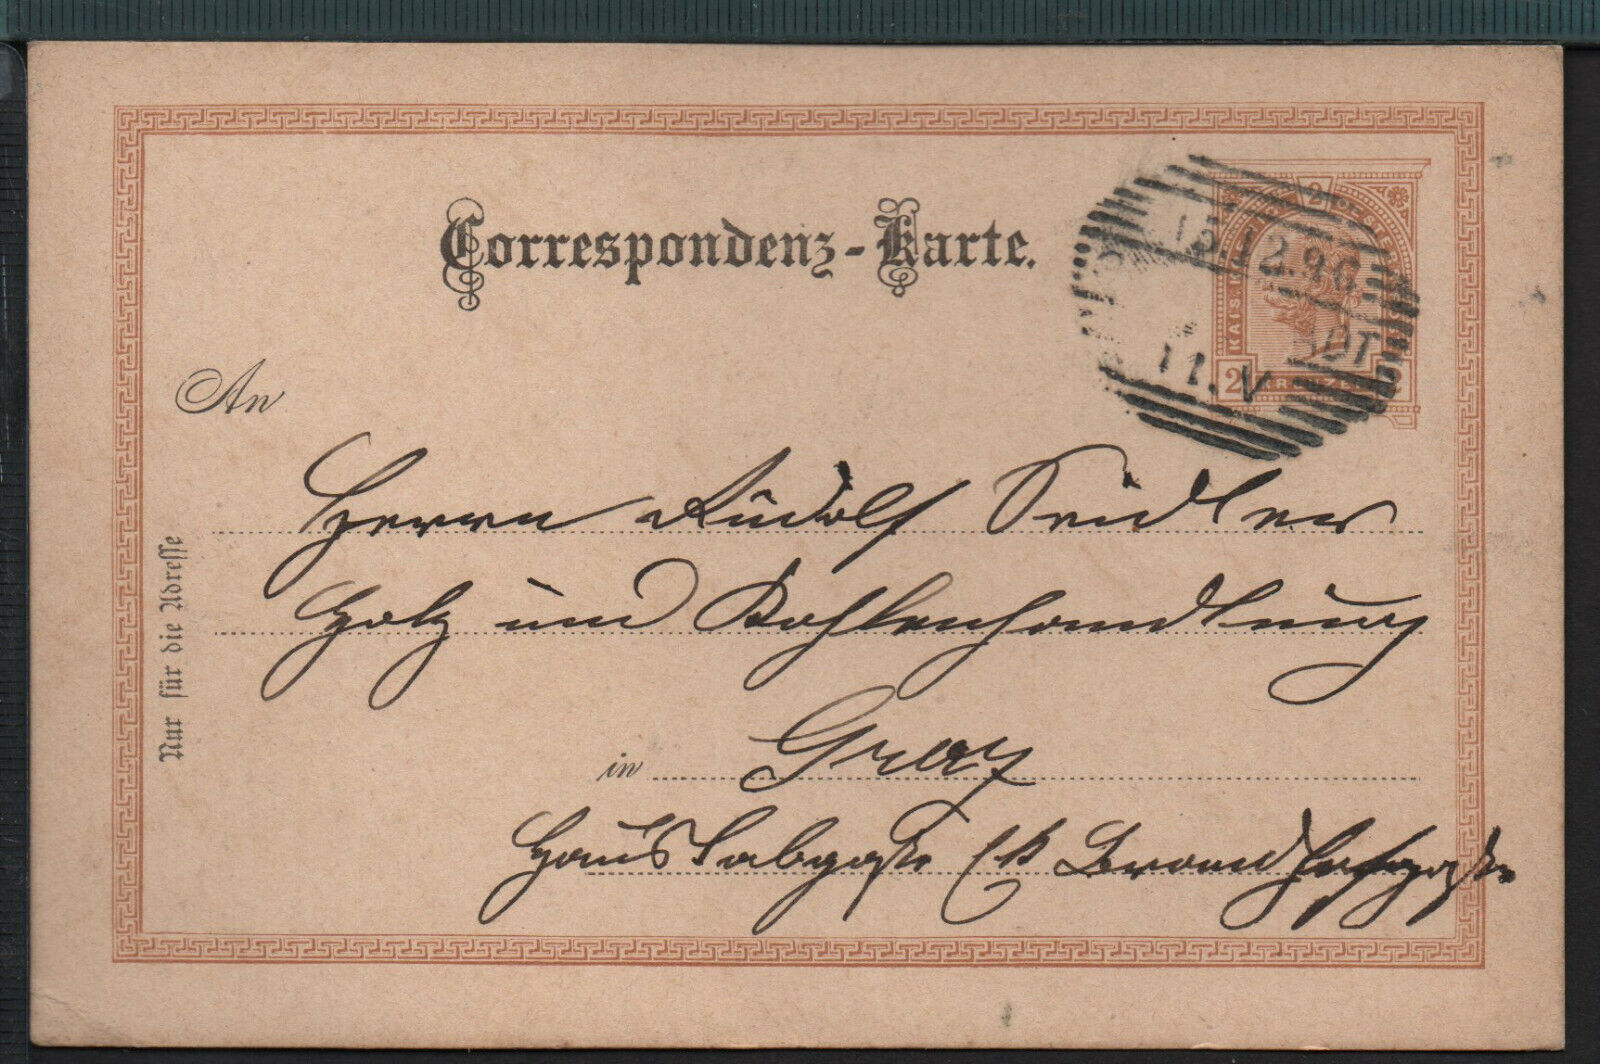 Correspondenz-Karte.
2
KAIS. OESTERR
2 KREUZER 2
12.96
11.V
An
Herrn Rudolf Seidler
Holz und Kohlenhandlung
in Graz
Nur für die Adresse